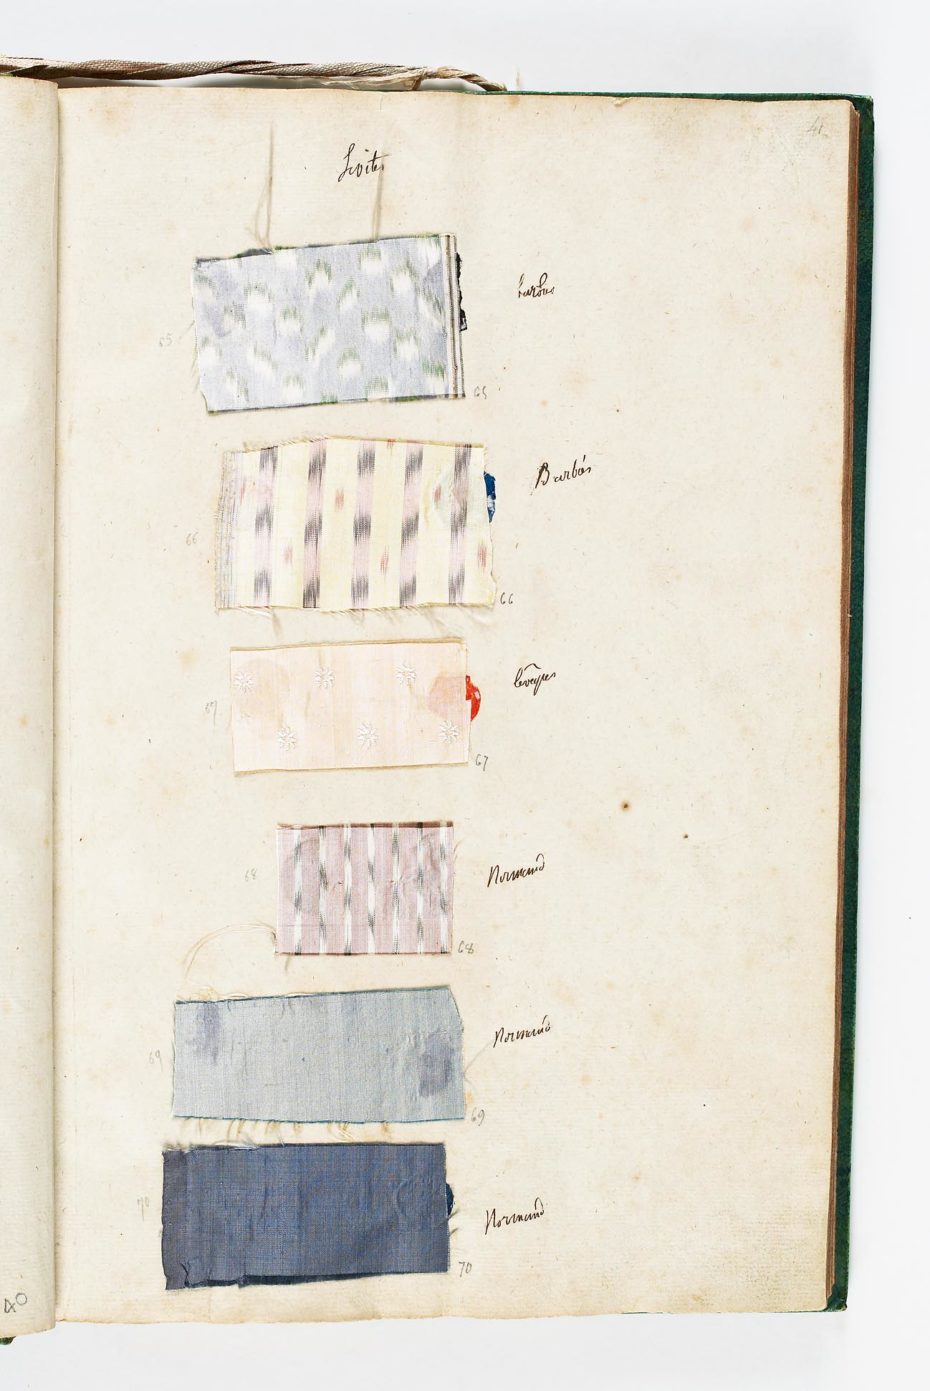 41
Levites
65
65
Barbier
66
66
67
67
68
Normand
68
69
Normand
69
70
Normand
70
40